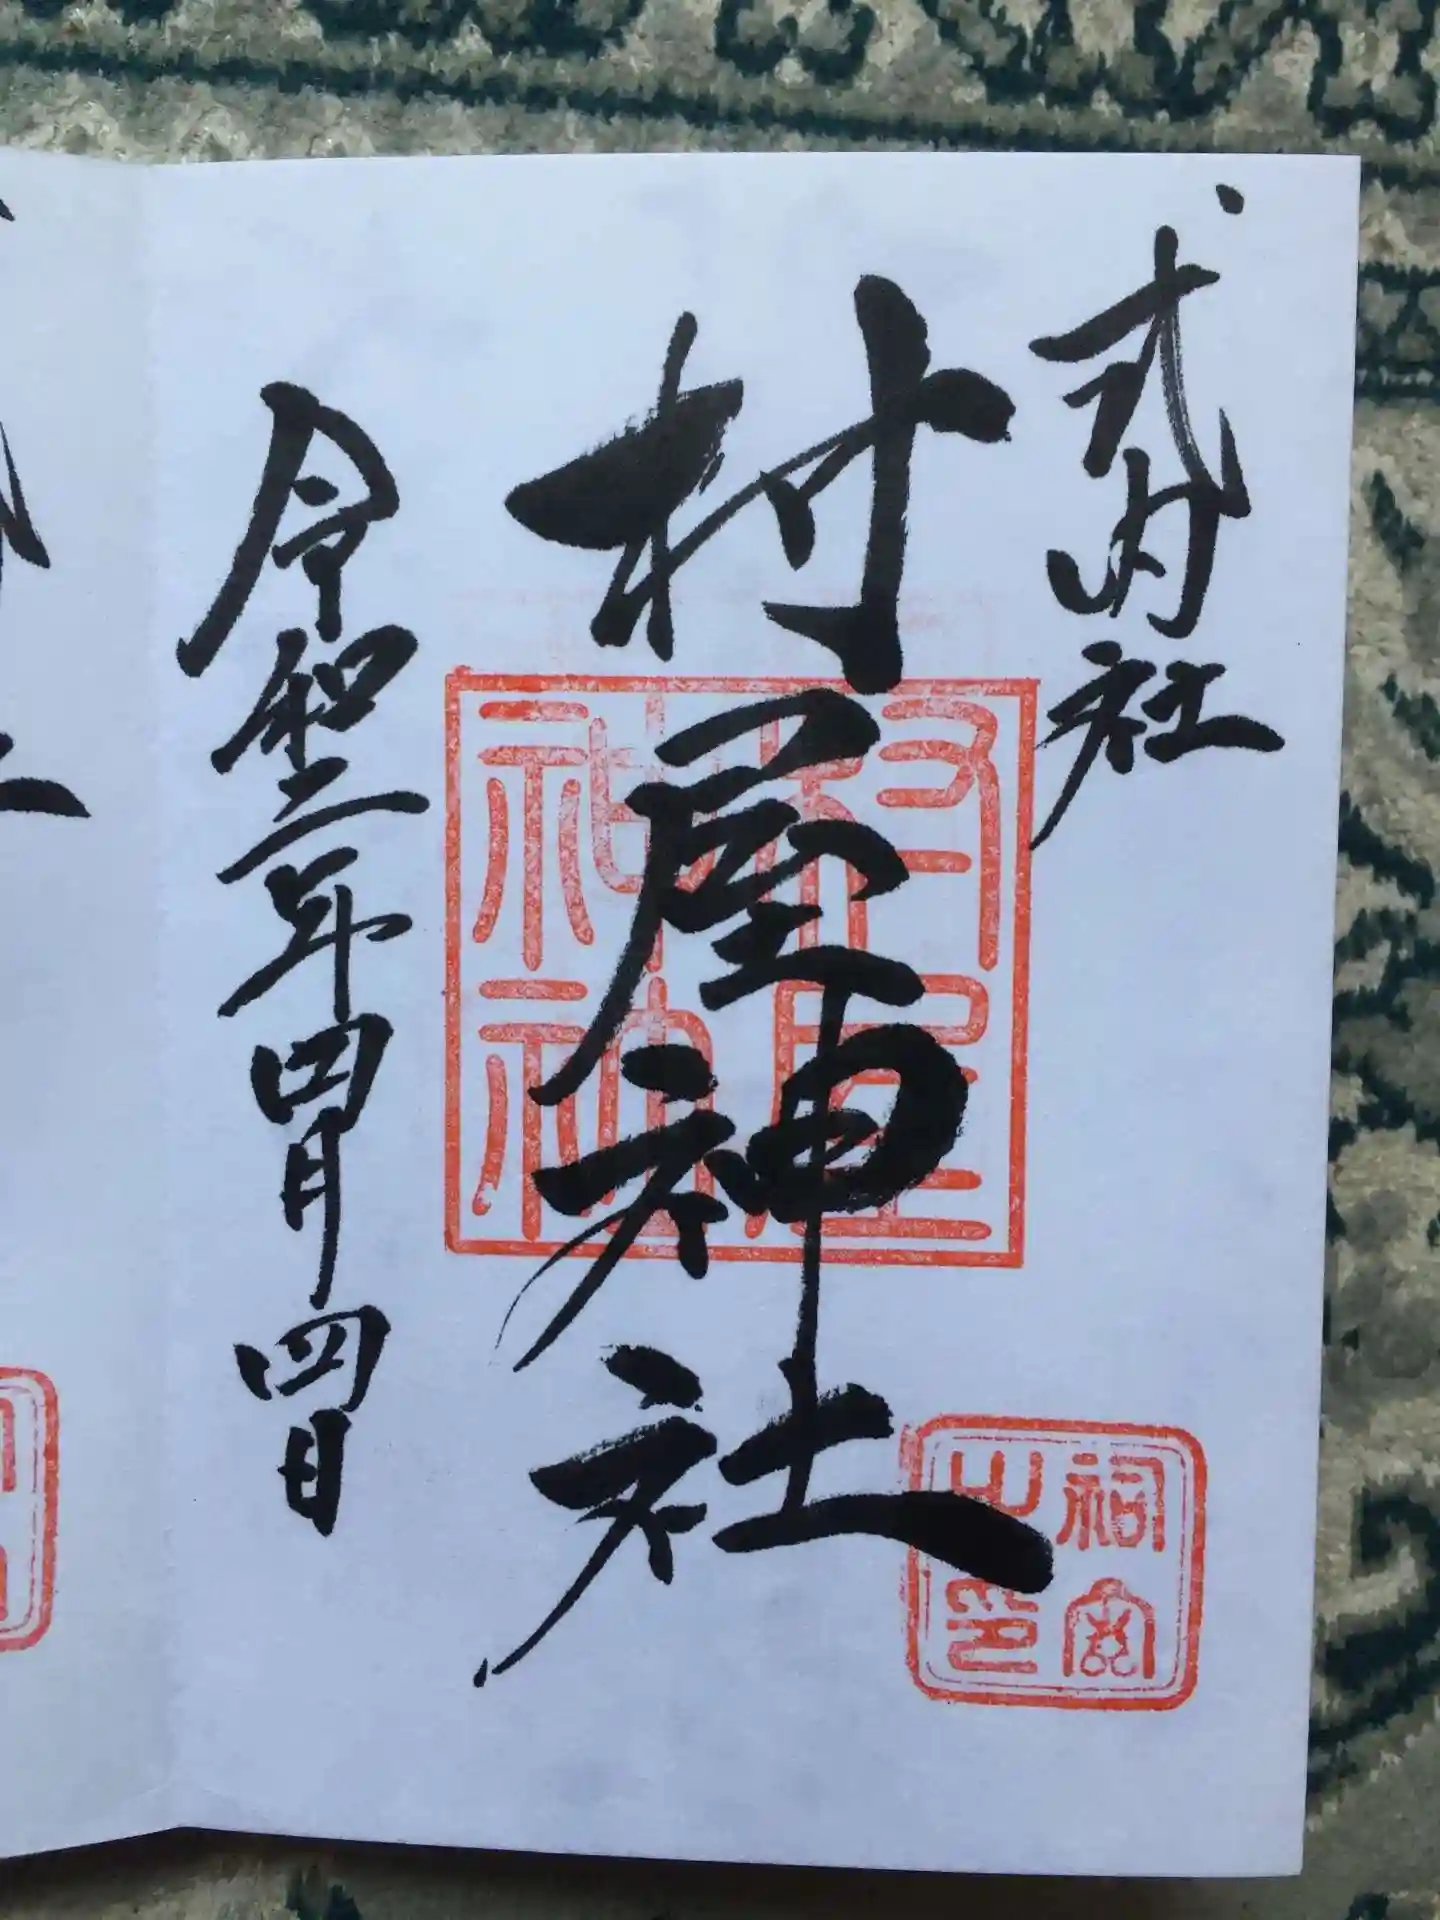 式内社
村屋神社
令和三年四月四日
村屋
神社
祠官
之印